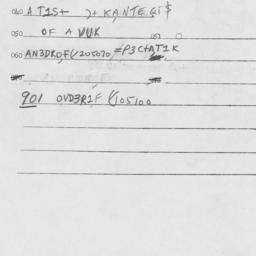 040 A T1S+ )+ KANTE.Gi$
050 OF A VUK 051
060 AN3DROF(/205070/=P3C+AT1K
901 OVD3R1F (/105100